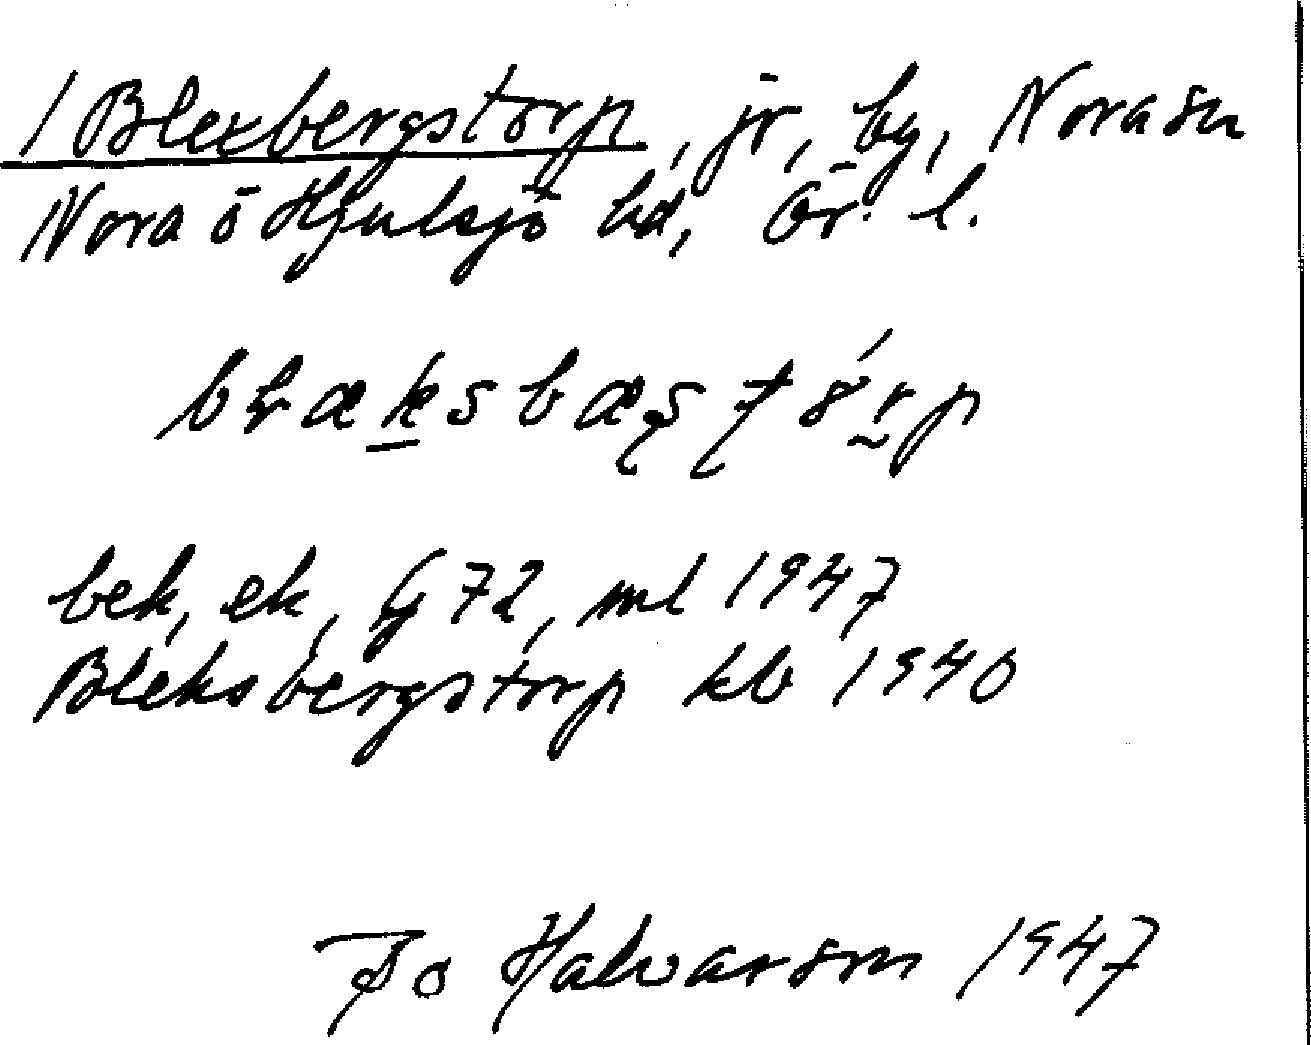 / Blexbergstorp, jr, by, Nora sn
Nora o Hjulsjö hd, Ör. l.
bek, ek, Gj 72, ml 1947
Bleksbergstorp kb 1940
Bo Halvarson 1947